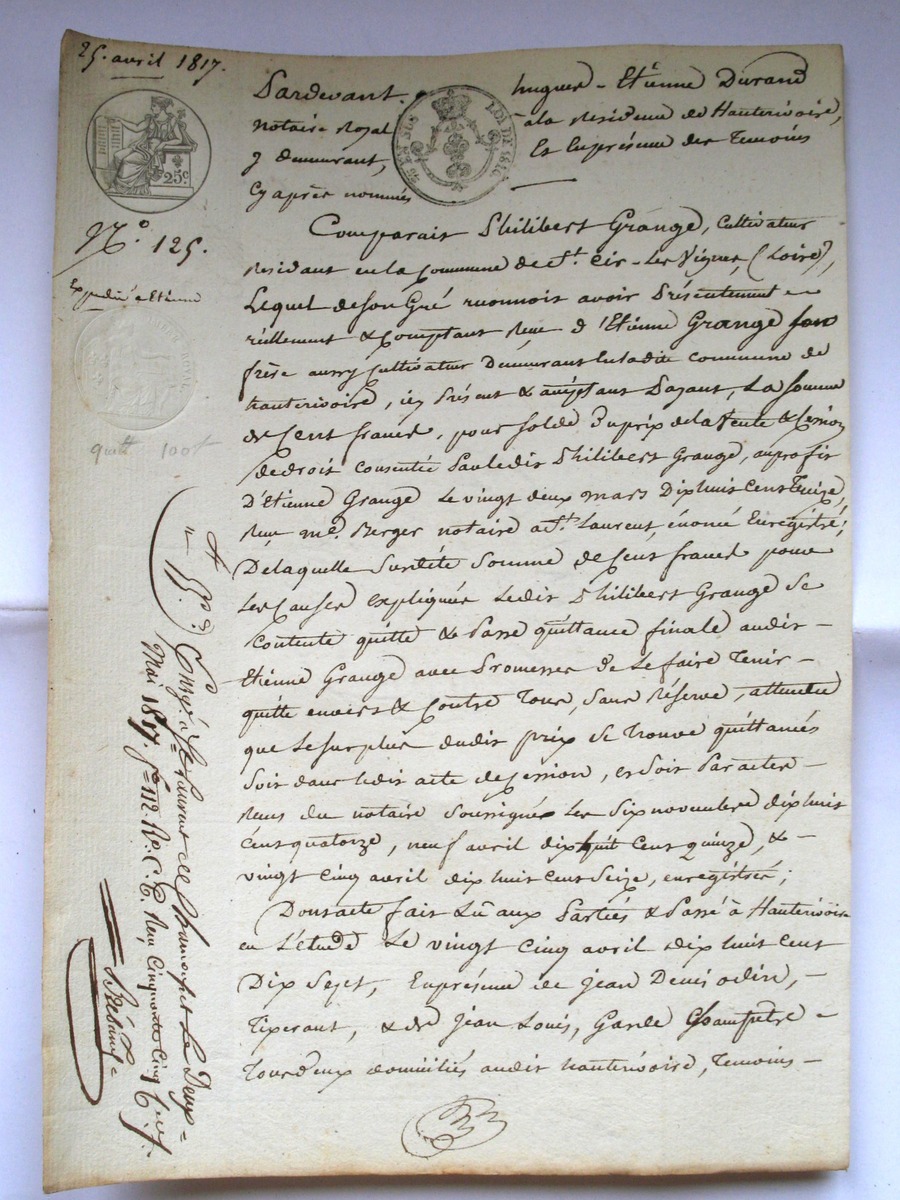 25. avril 1817.
Pardevant. hugues - Etienne Durand
notaire Royal à la Résidence de Hauterivoire,
y demeurant, Et Enprésence des Temoins
cy après nommés
25c.
EN SUS LOI DE 1816
N.o 125.
Expedié a Etienne
TIMBRE ROYAL
quitt 100f
Comparait Philibert Grange, Cultivateur
Residant en la Commune de St. Cir - Les Vignes, (Loire),
Lequel de son Gré reconnoit avoir Présentement
réellement & Comptant Reçu d'Etienne Grange son
frère aussy Cultivateur Demeurant Enladite commune de
hauterivoire, icy Présent & acceptant Payant, La somme
de Cent francs, pour solde Duprix dela Vente & Cession
de droit Consentie Parledit Philibert Grange, auprofit
D'Etienne Grange Le vingt deux mars Dix huit cent Treize,
Reçu me. Berger notaire a St. Laurent, énoncé Enregistré;
Delaquelle Surdite Somme de Cent francs pour
Les Causes Expliquées Ledit Philibert Grange se
Contente quitte & Passe quittance finale audit -
Etienne Grange avec Promesse de Le faire Tenir -
quitte envers & Contre Tous, sans Réserve, attendu
que Le surplus dudit prix se trouve quittancé
Soit dans ledit acte de Cession, et Soit Par actes -
Reçus du notaire Soussigné les Six novembre dix huit
Cent quatorze, neuf avril dix huit Cent quinze, & -
vingt Cinq avril dix huit Cent Seize, enregistrés;
Dont acte fait Lû aux Parties & Passé à Hauterivoire
en L'étude Le vingt Cinq avril dix huit Cent
Dix Sept, Enprésence de jean Denis odin, -
Tixerant, & de jean Louis, Garde Champêtre -
Tous deux domiciliés audit hauterivoire, Temoins -
Enrgé a St Laurent de Chamousset Le Deux
Mai 1817. fo 112. Ro. C. 6. Reçu Cinquante Cinq